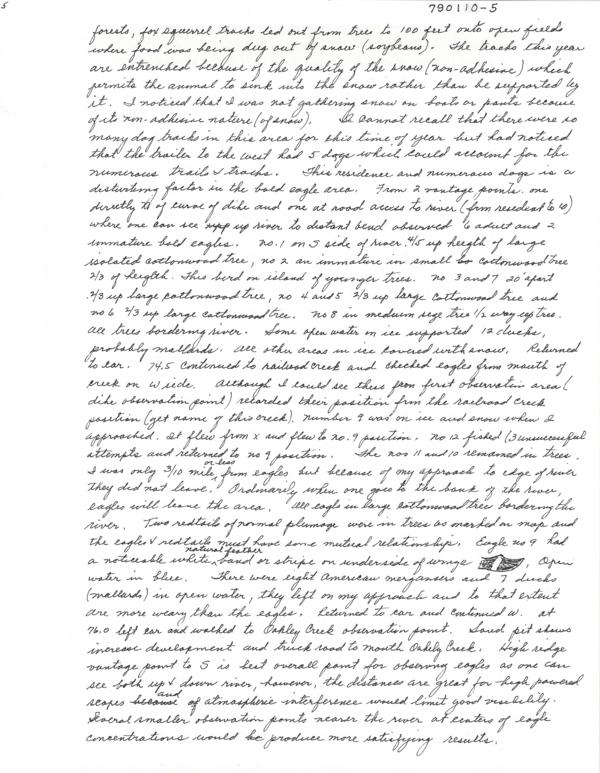 5
790110-5
forests, fox squirrel tracks led out from trees to 100 feet onto open fields
where food was being dug out of snow (soybeans). The tracks this year
are entrenched because of the quality of the snow (non-adhesive) which
permits the animal to sink into the snow rather than be supported by
it. I noticed that I was not gathering snow on boots or pants because
of its non-adhesive nature (of snow). I cannot recall that there were so
many dog tracks in this area for this time of year but had noticed
that the trailer to the west had 5 dogs which could account for the
numerous trails & tracks. This residence and numerous dogs is a
disturbing factor in the bald eagle area. From 2 vantage points. one
directly N of curve of dike and one at road access to river (from resident to 6)
where one can see up river to distant bend observed 6 adult and 2
immature bald eagles. no. 1 on S side of river 4/5 up heigth of large
isolated cottonwood tree, no 2 an immature in small cottonwood tree
2/3 of heigth. This bird on island of younger trees. no 3 and 7 20' apart
2/3 up large cottonwood tree, no 4 and 5 2/3 up large cottonwood tree and
no 6 2/3 up large cottonwood tree. No 8 in medium size tree 1/2 way up tree.
all trees bordering river. Some open water on ice supported 12 ducks,
probably mallards. All other areas in ice covered with snow. Returned
to car. 74.5 continued to railroad creek and checked eagles from mouth of
creek on W side. Although I could see these from first observation area (
dike observation point) recorded their position from the railroad creek
position (get name of this creek). Number 9 was on ice and snow when I
approached. It flew from x and flew to no. 9 position. No 12 fished (3 unsuccessful
attempts and returned to no 9 position. The nos 11 and 10 remained in trees.
I was only 3/10 mile or less from eagles but because of my approach to edge of river
they did not leave. Ordinarily when one goes to the bank of the river,
eagles will leave the area. All eagles in large cottonwood trees bordering the
river. Two redtails of normal plumage were in trees as marked on map and
the eagles & redtails must have some mutual relationship. Eagle no 9 had
a noticeable white natural feather band or stripe on underside of wings. Open
water in blue. There were eight American mergansers and 7 ducks
(mallards) in open water, they left on my approach and to that extent
are more weary than the eagles. Returned to car and continued W. at
76.0 left car and walked to Oakley Creek observation point. Sand pit shows
increase development and truck road to mouth Oakley Creek. High ridge
vantage point to S is best overall point for observing eagles as one can
see both up & down river, however, the distances are great for high powered
scopes because and of atmospheric interference would limit good visibility.
Several smaller observation points nearer the river at centers of eagle
concentrations would be produce more satisfying results.